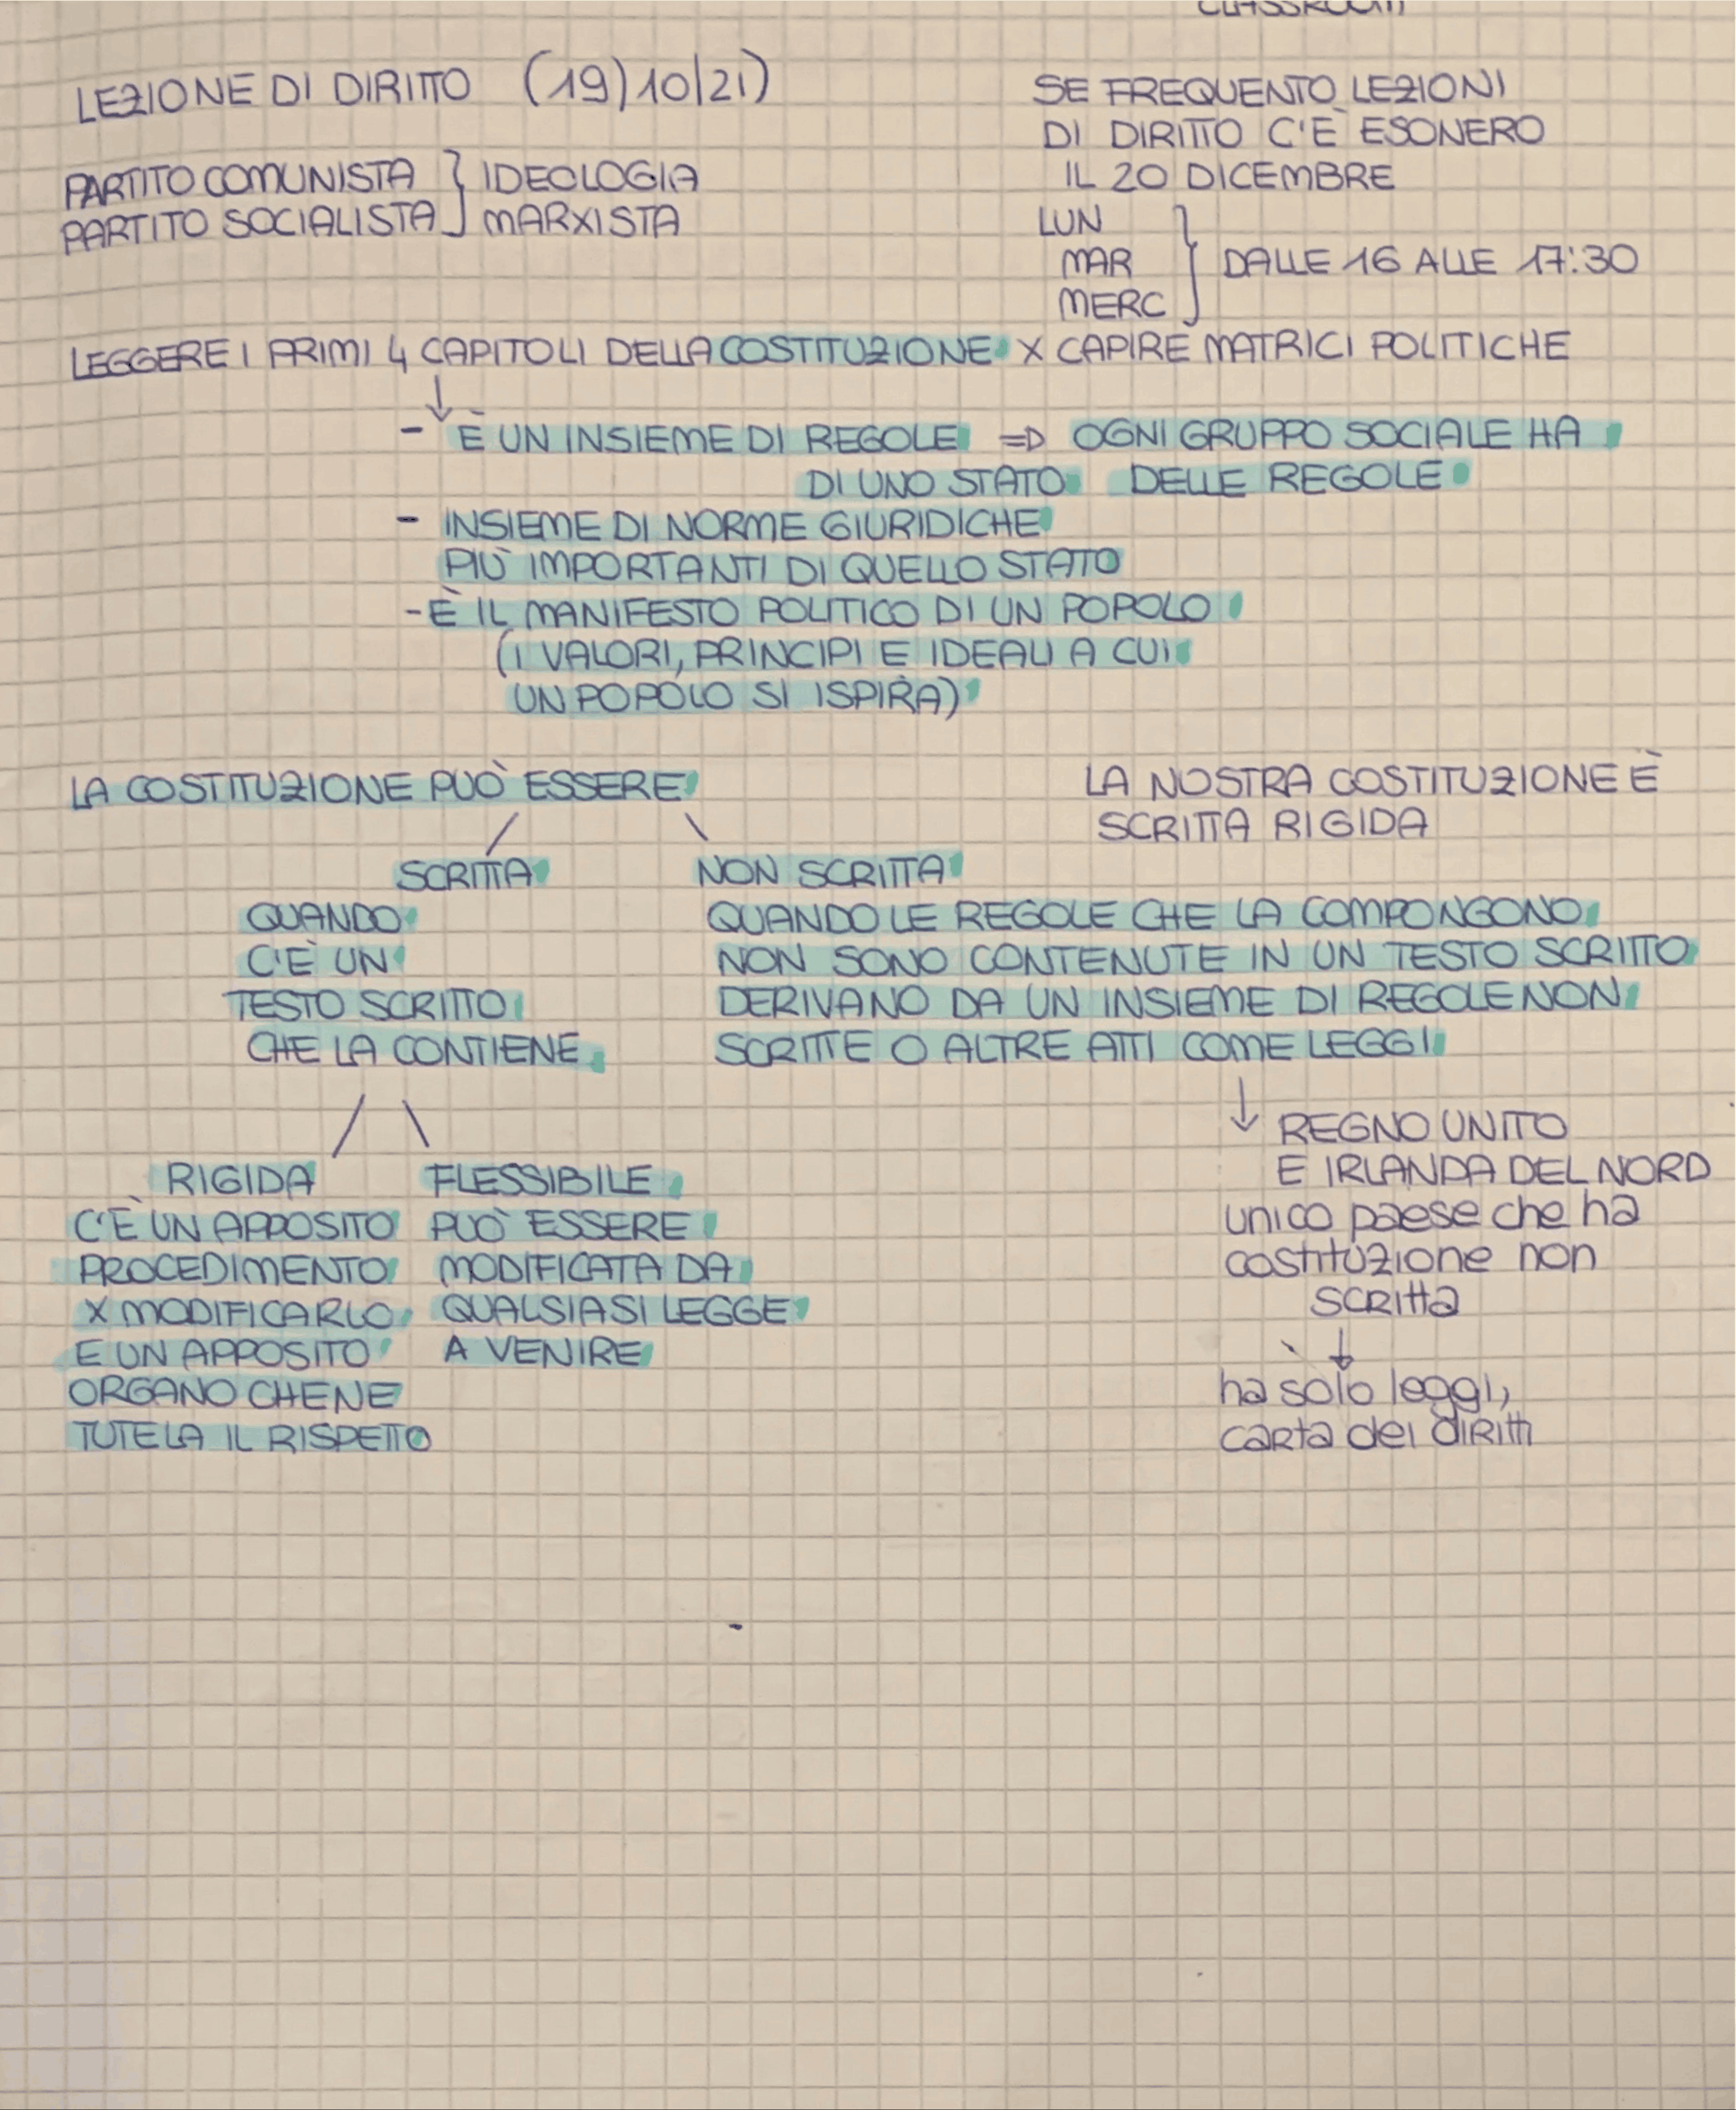 CLASSROOM
LEZIONE DI DIRITTO (19)10/21)
SE FREQUENTO LEZIONI
DI DIRITTO C'È ESONERO
IL 20 DICEMBRE
PARTITO COMUNISTA } IDEOLOGIA
PARTITO SOCIALISTA } MARXISTA
LUN
MAR } DALLE 16 ALLE 17:30
MERC
LEGGERE I PRIMI 4 CAPITOLI DELLA COSTITUZIONE X CAPIRE MATRICI POLITICHE
↓
- È UN INSIEME DI REGOLE => OGNI GRUPPO SOCIALE HA
DI UNO STATO DELLE REGOLE
- INSIEME DI NORME GIURIDICHE
PIÙ IMPORTANTI DI QUELLO STATO
- È IL MANIFESTO POLITICO DI UN POPOLO
(I VALORI, PRINCIPI E IDEALI A CUI
UN POPOLO SI ISPIRA)
LA COSTITUZIONE PUÒ ESSERE
LA NOSTRA COSTITUZIONE È
SCRITTA RIGIDA
SCRITTA
QUANDO
C'È UN
TESTO SCRITTO
CHE LA CONTIENE
NON SCRITTA
QUANDO LE REGOLE CHE LA COMPONGONO
NON SONO CONTENUTE IN UN TESTO SCRITTO
DERIVANO DA UN INSIEME DI REGOLE NON
SCRITTE O ALTRE ATTI COME LEGGI
RIGIDA
C'È UN APPOSITO
PROCEDIMENTO
X MODIFICARLO
E UN APPOSITO
ORGANO CHE NE
TUTELA IL RISPETTO
FLESSIBILE
PUÒ ESSERE
MODIFICATA DA
QUALSIASI LEGGE
A VENIRE
↓ REGNO UNITO
E IRLANDA DEL NORD
unico paese che ha
costituzione non
scritta
↓
ha solo leggi,
carta dei diritti